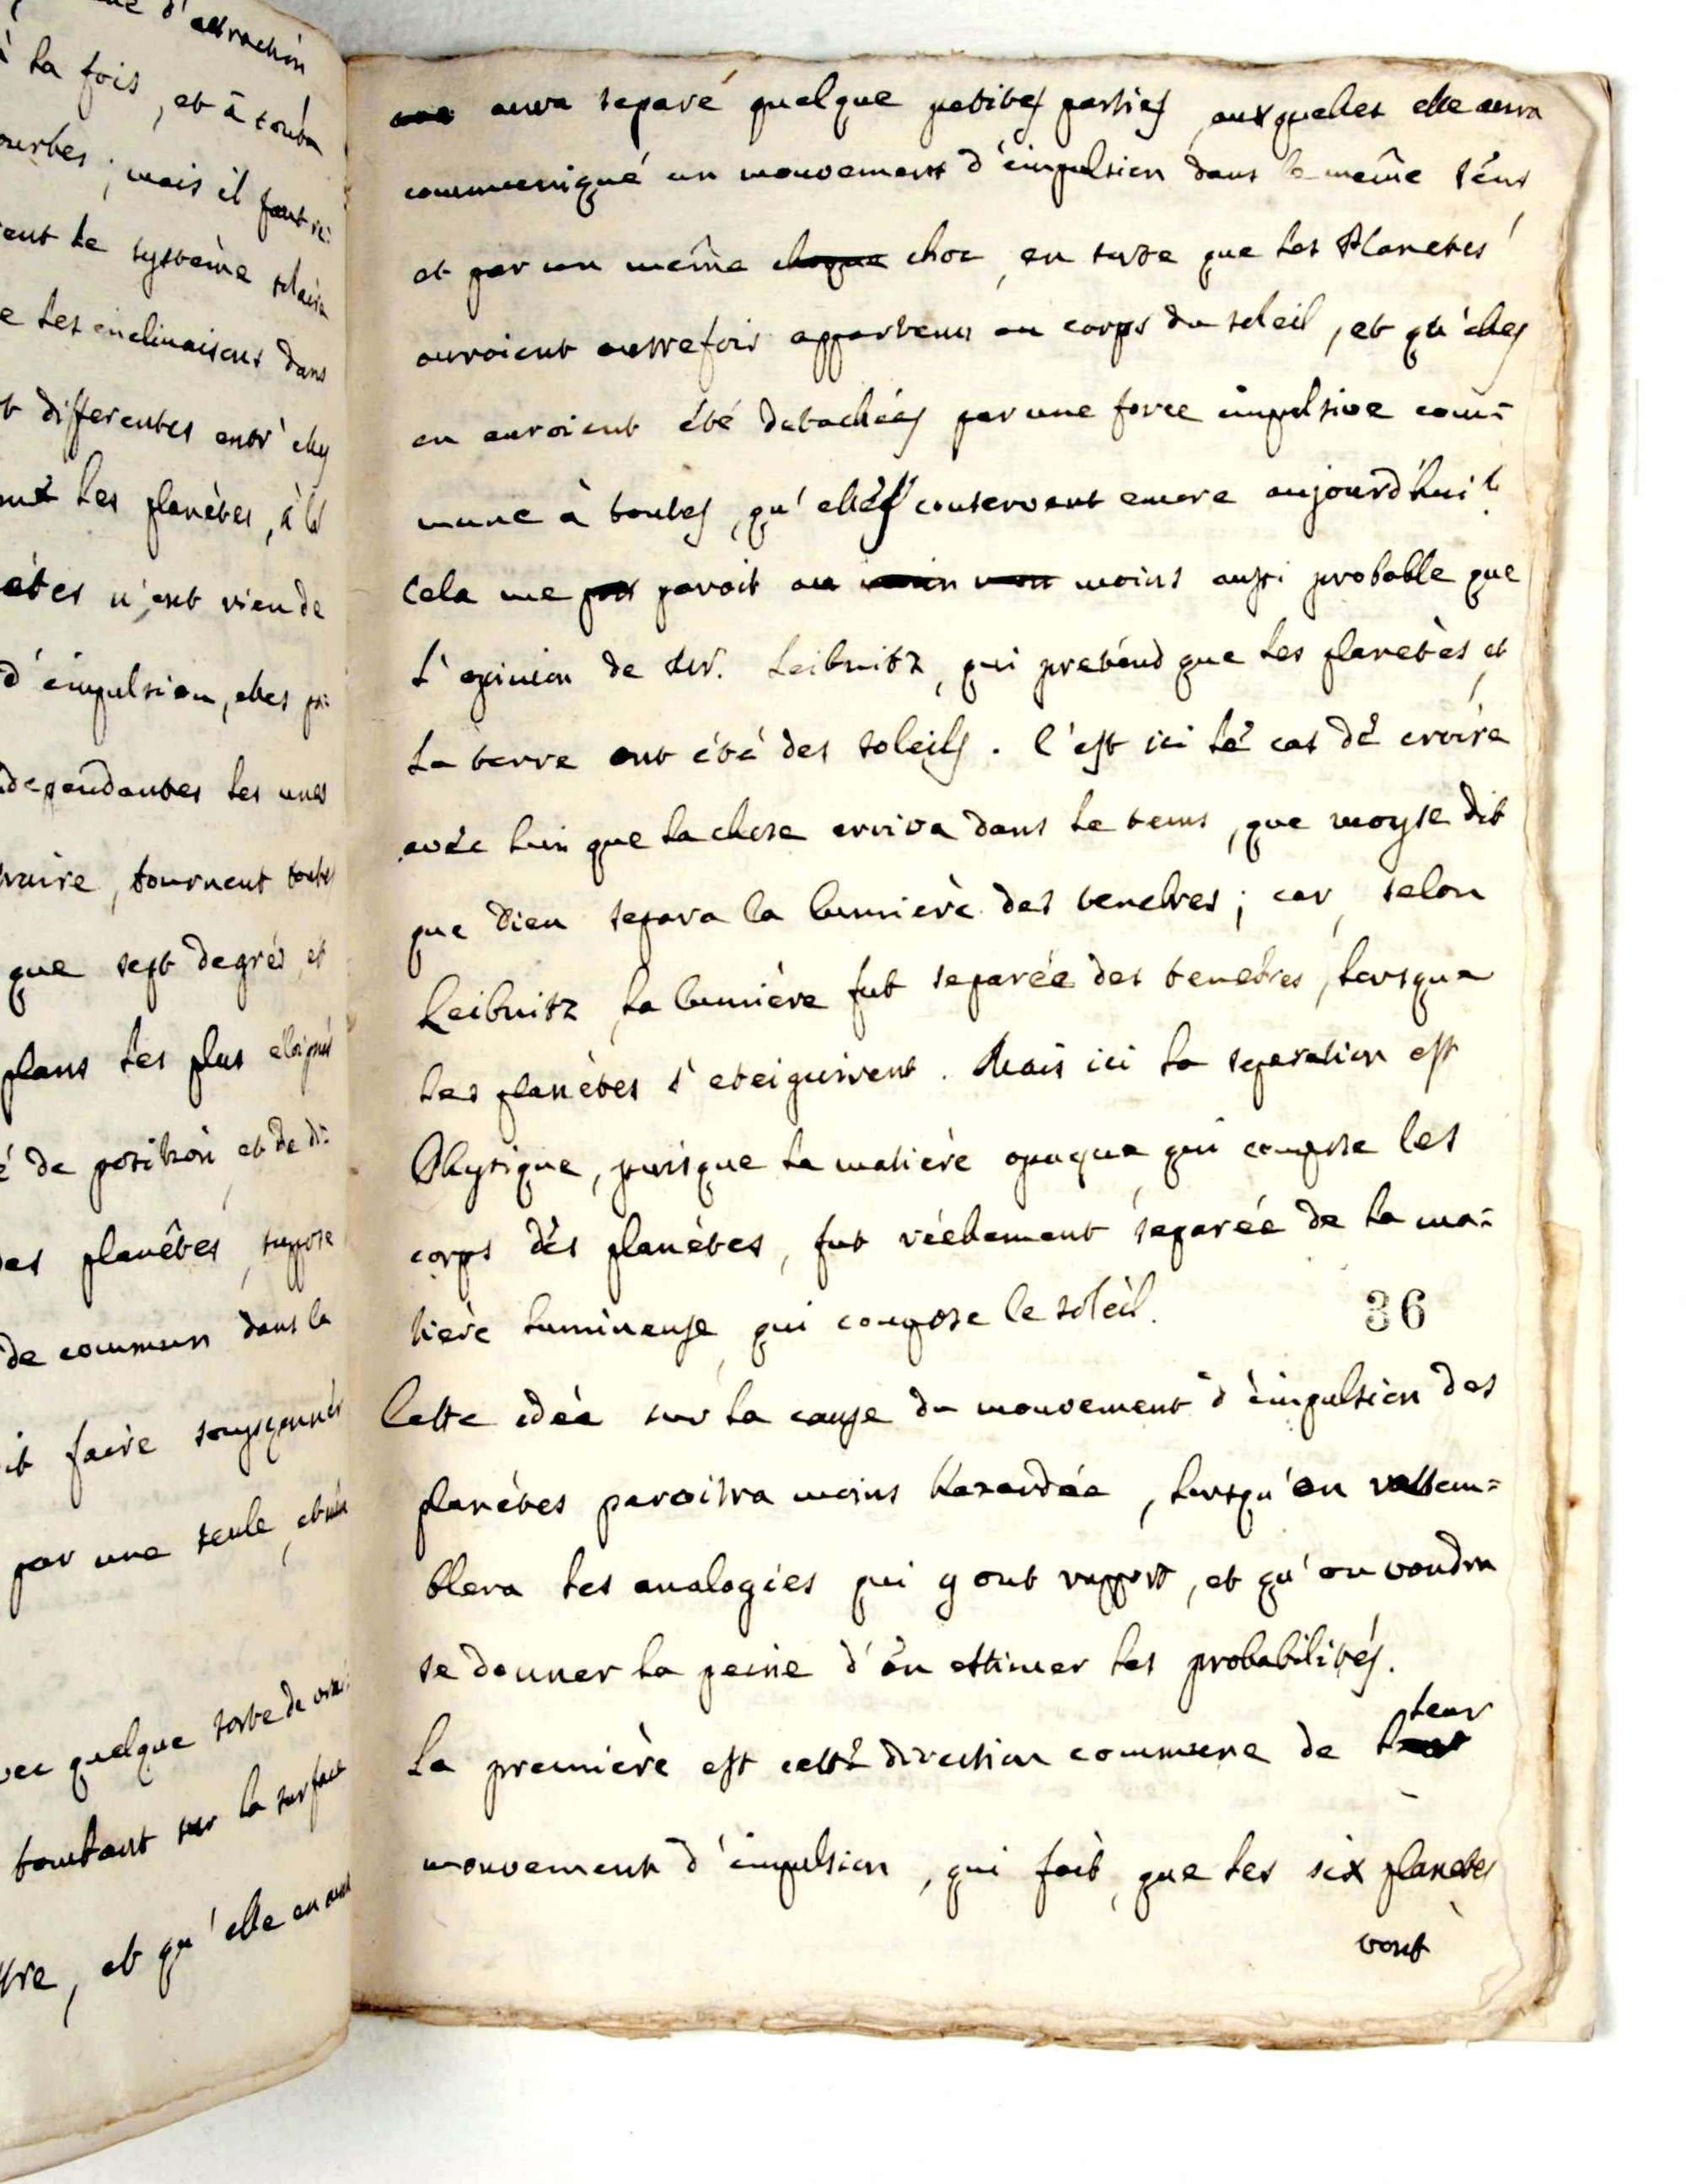 d'attraction
à la fois, et à
ourbes; mais il faut
ent le système solair
e les inclinaisons dans
t differentes entr'elles
les planètes, à la
ètes n'ont rien de
d'impulsion, elles
dependantes les unes
raire, tournent toutes
que sept degrés, et
plans les plus éloignés
é de position, et de di-
es planêtes, suppose
de commun dans la
it faire soupçonner
par une seule,
vec quelque sorte de vrai-
tombant sur la surface
tre, et qu'elle en aura
aura separé quelque petites parties, auxquelles elle aura
communiqué un mouvement d'impulsion dans le même sens
et par un même choque choc, en sorte que les Planetes
auroient autrefois appartenu au corps du soleil, et qu'elles
en auroient été detachées par une force impulsive com=
mune à toutes, qu'elles conservent encore aujourd'hui?
Cela me paroit au moins aussi probable que
l'opinion de Mr. Leibnitz, qui pretend que les planetès, et
la terre ont été des soleils. C'est ici le cas de croire
avec lui que la chose arriva dans le tems, que moyse dit
que Dieu separa la lumière des tenebres; car, selon
Leibnitz, la lumière fut separée des tenebres, lorsque
les planètes s'eteignirent. Mais ici la separation est
Physique, puisque la matière opaque, qui compose les
corps des planètes, fut réelement separée de la ma=
tière lumineuse, qui compose le soleil.
36
Cette idée sur la cause du mouvement d'impulsion des
planètes paroitra moins hazardée, lorsqu'on rassem=
blera les analogies qui y ont rapport, et qu'on voudra
se donner la peine d'en estimer les probabilités.
leur
La première est cette direction commune de
mouvement d'impulsion, qui fait, que les six planetes
vont